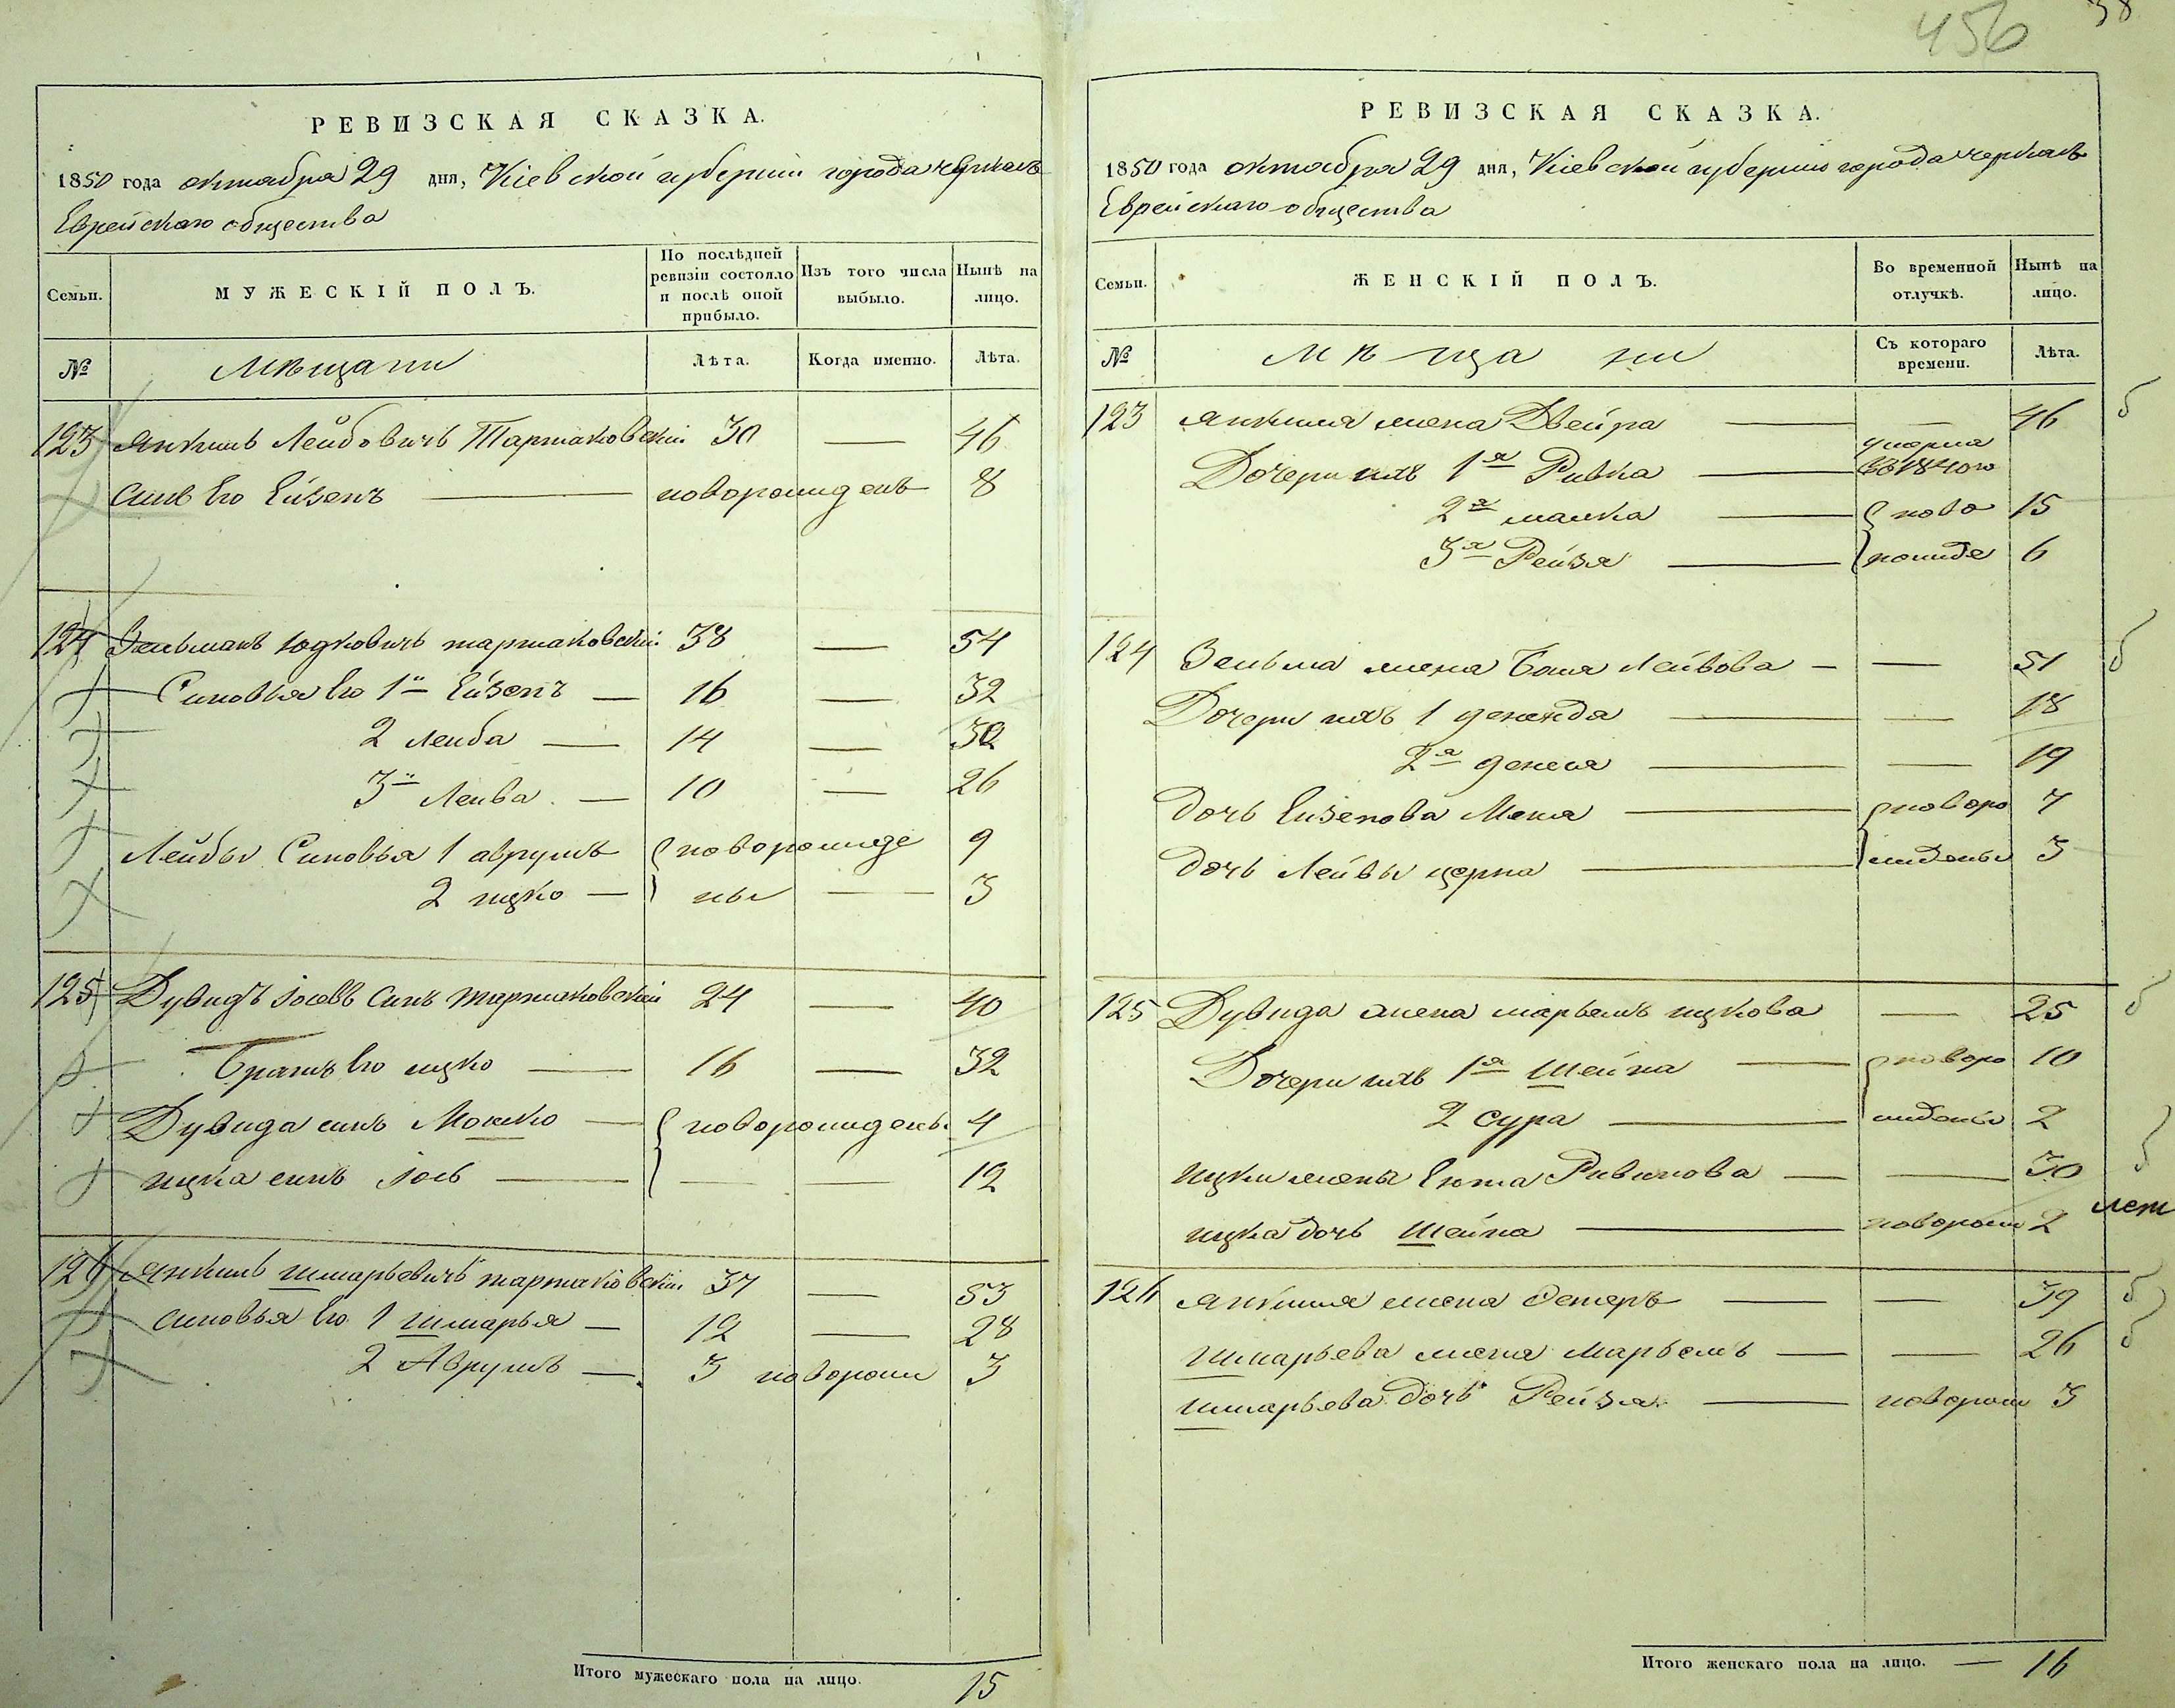 456
38
РЕВИЗСКАЯ СКАЗКА.
1850 года октабра 29 дня, Кіевской губерніи города черкасъ
Еврейскаго общества
Семьи.
МУЖЕСКІЙ ПОЛЪ.
По послѣдней ревизіи состояло и послѣ оной прибыло.
Изъ того числа выбыло.
Нынѣ на лицо.
№
Мѣщани
Лѣта.
Когда именно.
Лѣта.
123 Янкель Лейбовичъ Тартаковскій 30 — 46
Синъ Его Ейзенъ — новорожденъ 8
124 Зельманъ Юдковичъ тартаковскій 38 — 54
Синовья Его 1й Ейзенъ — 16 — 32
2 Лейба — 14 — 30
3й Лейва — 10 — 26
Лейбы Синовья 1 аврумъ новорожде 9
2 ицко — ны — 3
125 Дувидъ Іосевъ Синъ тартаковскій 24 — 40
Братъ Его ицко — 16 — 32
Дувида синъ Мошко — новорожденъ 4
ицка синъ Іось — — — 12
126 Янкель Шмарьевичъ тартаковскій 37 — 53
синовья Его 1 Шмарья — 12 — 28
2 Аврумъ — 3 новорож 3
Итого мужескаго пола на лицо. 15
РЕВИЗСКАЯ СКАЗКА.
1850 года октабра 29 дня, Кіевской губерніи города черкасъ
Еврейскаго общества
Семьи.
ЖЕНСКІЙ ПОЛЪ.
Во временной отлучкѣ.
Нынѣ на лицо.
№
Мѣщани
Съ котораго времени.
Лѣта.
123 Янкиля жена Двейра — — 46
Дочери ихъ 1я Ривка — умерла в 1840го
2я малка — ново 15
3я Рейзя — рожде 6
124 Зельма жена Бася Лейбова — — 51
Дочери ихъ 1 — — 18
2я — — 19
дочь Ейзенова Меня — новоро 7
дочь Лейвы церна — ждены 3
125 Дувида жена марьемъ ицкова — 25
Дочери ихъ 1я Шейна — новоро 10
2 сура — жденыя 2
ицки жена Ента — — 30
ицка дочь Шейна — новорож 2
лет
126 Янкиля жена Естеръ — — 39
Шмарьева жена Марьемъ — — 26
Шмарьева дочь Рейзя — новорож 3
Итого женскаго пола на лицо. — 16